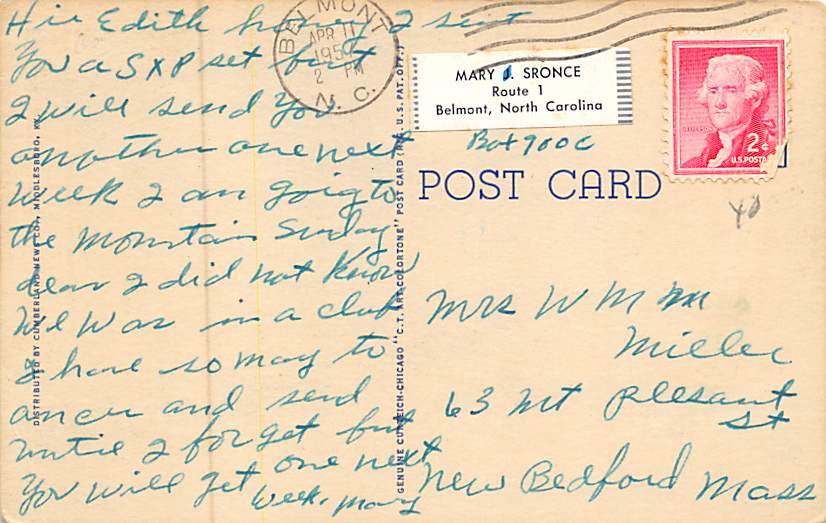 Hi Edith honey I sent
You a S x P set but
I will send You
another one next
Week I am going to
the Mountain Sunday
dear I did not Know
We Was in a club
I have so many to
ancer and send
until I forget but
You will get one next
Week. Mary
BELMONT
APR 11
2 PM
N. C.
MARY J. SRONCE
Route 1
Belmont, North Carolina
Box 900 C
JEFFERSON
2¢
U.S. POSTA
POST CARD
40
Mrs W M M
Miller
63 Mt Plesant
St
New Bedford Mass
DISTRIBUTED BY CUMBERLAND NEWS CO., MIDDLESBORO, KY.
GENUINE CURTEICH-CHICAGO "C.T. ART-COLORTONE" POST CARD (REG. U.S. PAT. OFF.)